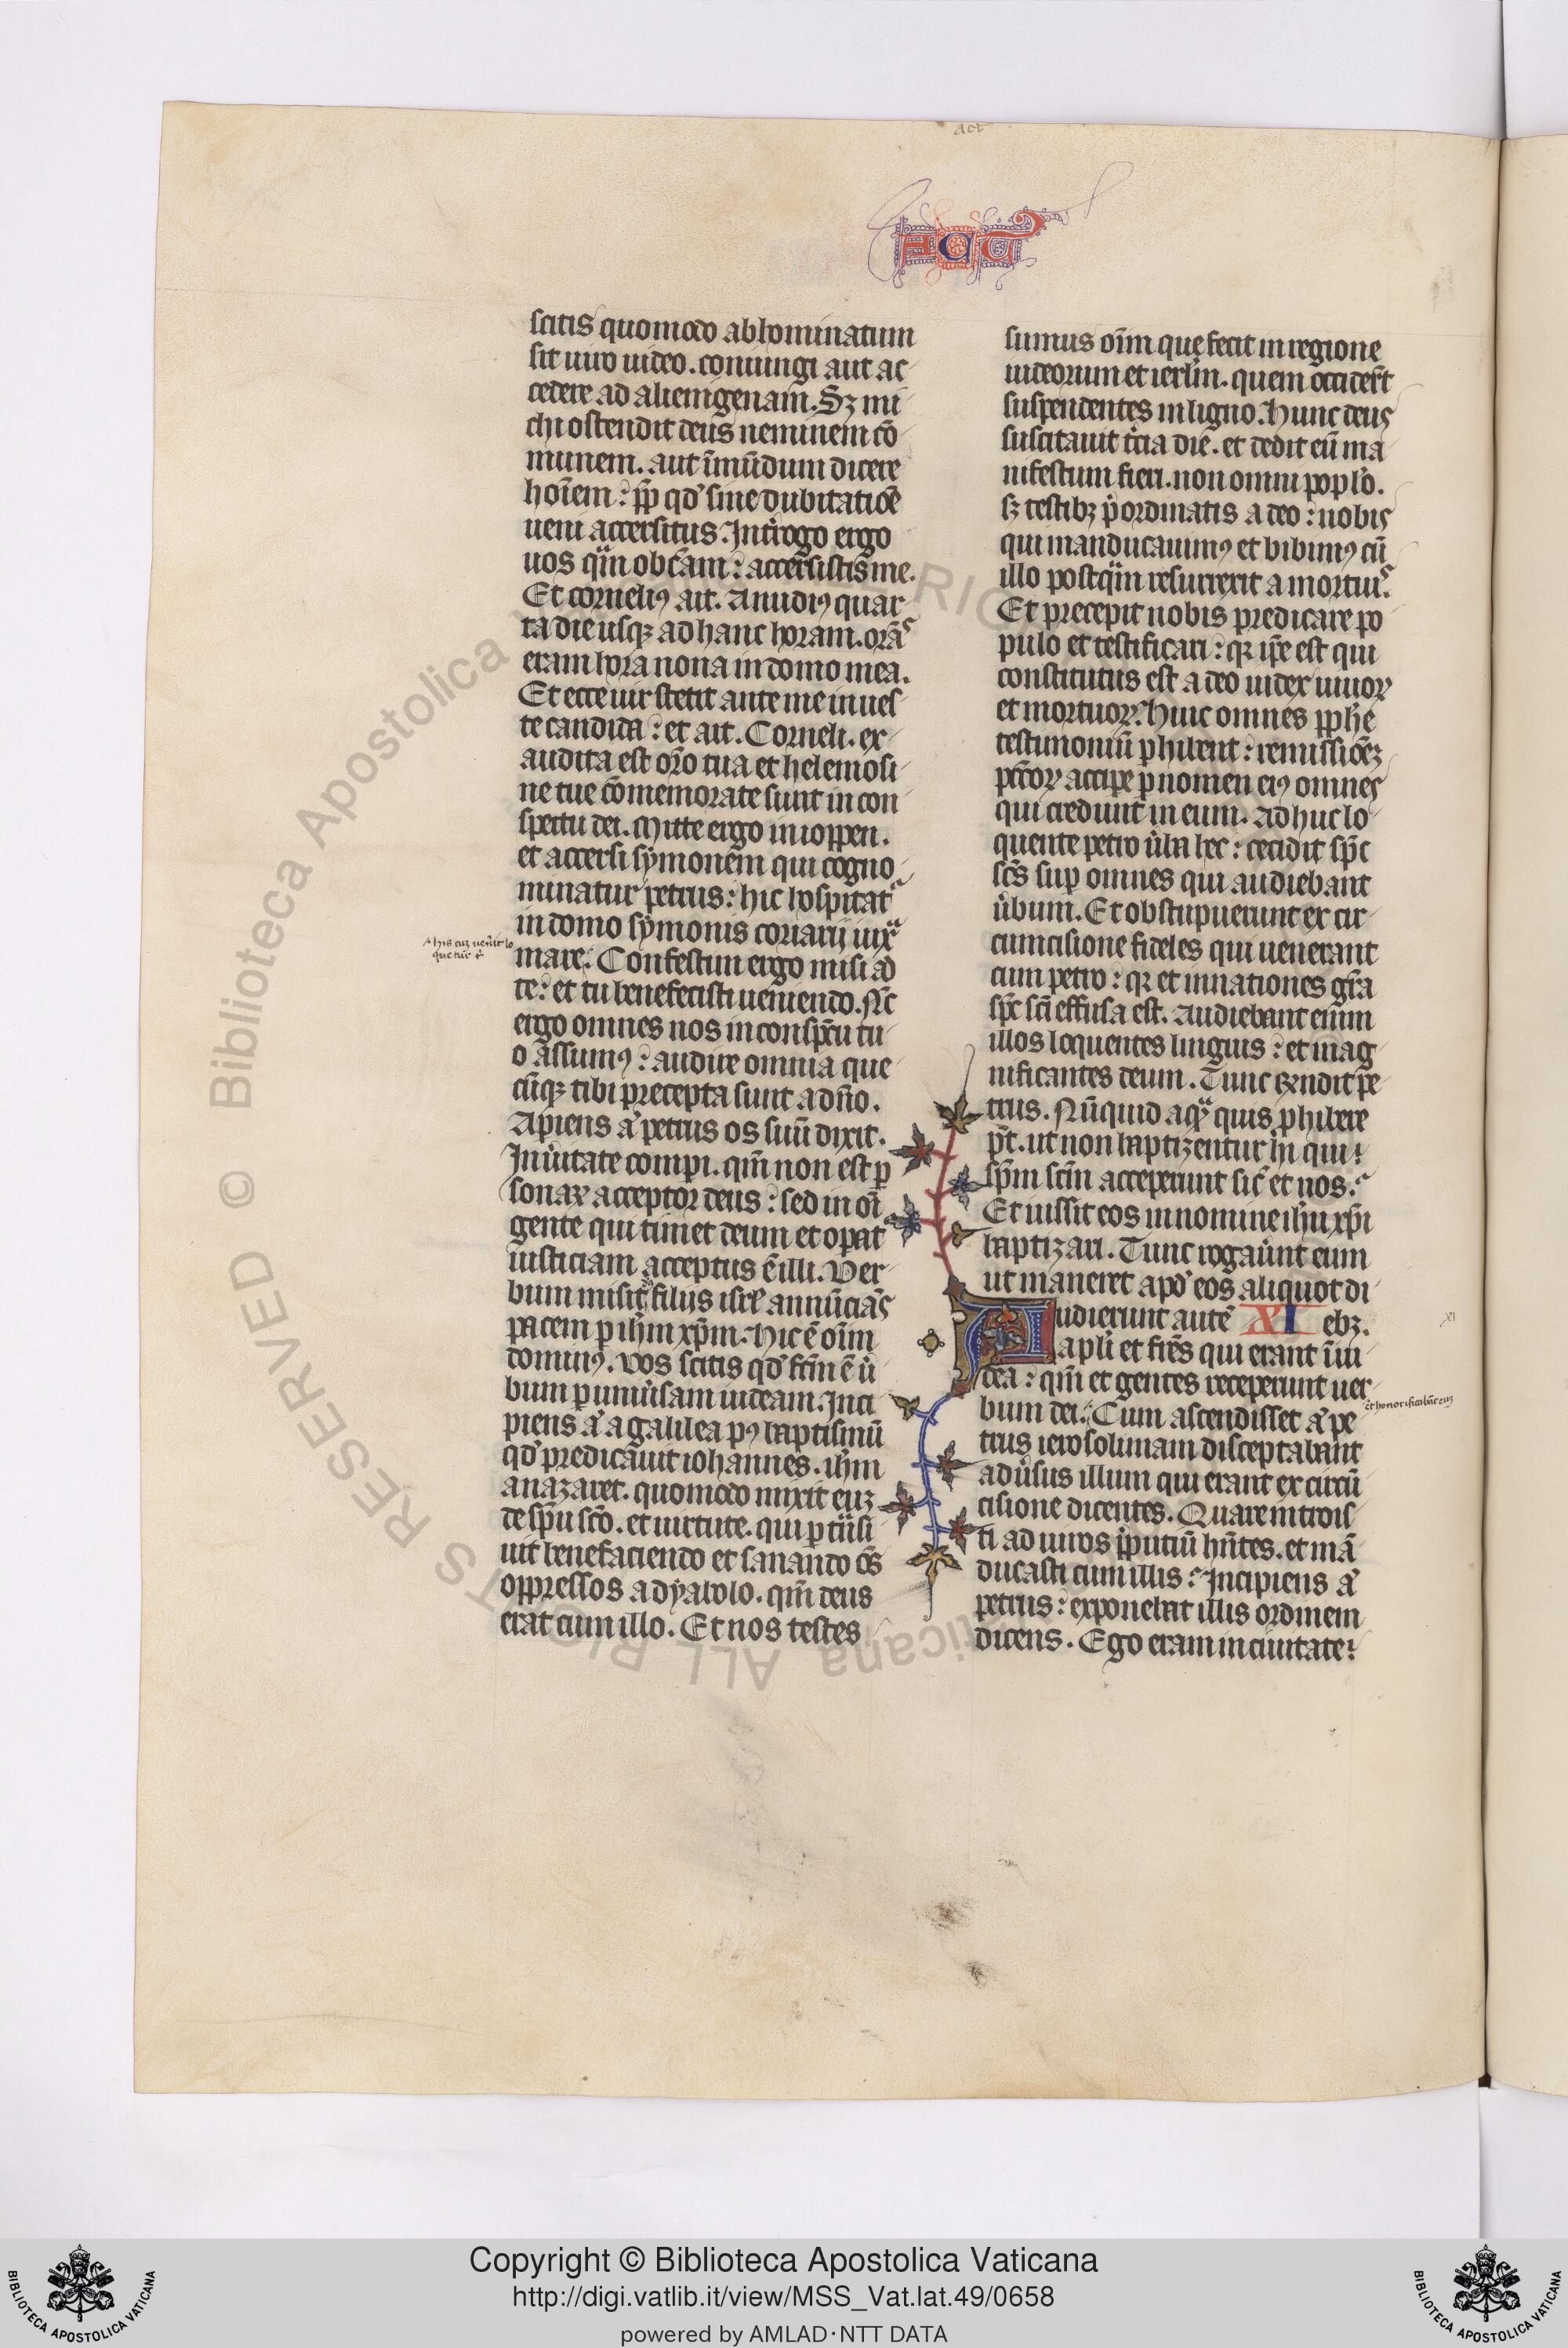 act
ACT
scitis quomodo abhominatum
sit uiro iudeo. coniungi aut ac-
cedere ad alienigenam. Sꝫ mi-
chi ostendit deus neminem cō-
munem. aut īmūdum dicere
hoīem: ꝓp qd̓ sine dubitatiōe
ueni accersitus. Int̓rogo ergo
uos qͣm ob cām: accersistis me.
Et corneliꝰ ait. A nudiꝰ quar-
ta die usqꝫ ad hanc horam. orās
eram hora nona in domo mea.
Et ecce uir stetit ante me in ues-
te candida: et ait. Corneli. ex-
audita est orō tua et helemosi-
ne tue cōmemorate sunt in con-
spectu dei. Mitte ergo in ioppen.
et accersi symonem qui cogno-
minatur petrus: hic hospitat᷑
in domo symonis coriarij iuxͣ
mare. Confestim ergo misi ad
te: et tu benefecisti ueniendo. Nc̄
ergo omnes nos in conspc̄u tu-
o assumꝰ: audire omnia que-
cūqꝫ tibi precepta sunt a dn̄o.
Apiens a̓ petrus os suū dixit.
In ueritate compi. qm̄ non est ꝑ-
sonaꝝ acceptor deus: sed in oī
gente qui timet deum et opat᷑
iusticiam acceptus ē illi. Ver-
bum misit filijs isrl̓ annūciās
pacem ꝑ ihm̄ xp̄m. Hic ē oīm
dominꝰ. Vos scitis qd̓ fcm̄ ē u̓-
bum ꝑ uniu̓sam iudeam. Inci-
piens a̓ a galilea pꝰ baptismū
qd̓ predicauit iohannes. ihm̄
a nazaret. quomodo unxit euꝫ
de sp̄u sc̄o. et uirtute. qui ꝑtͣnsi-
uit benefaciendo et sanando ōs
oppressos a dyabolo. qm̄ deus
erat cum illo. Et nos testes
sumus oīm que fecit in regione
iudeorum et ierlm̄. quem occider̄t
suspendentes in ligno. Hunc deus
suscitauit t̓cia die. et dedit eū ma-
nifestum fieri. non omni poplo̓.
sꝫ testibꝫ p̓ordinatis a deo: nobis
qui manducauimꝰ et bibimꝰ cū
illo postqͣm resurrexit a mortuis.
Et precepit nobis predicare po-
pulo et testificari: qꝛ ip̄e est qui
constitutus est a deo iudex uiuoꝝ
et mortuoꝝ. Huic omnes ꝓphē
testimoniū ꝑhibent: remissiōeꝫ
pccōꝝ accipe ꝑ nomen eiꝰ omnes
qui credunt in eum. Adhuc lo-
quente petro u̓ba hec: cecidit sp̄c
sc̄s sup omnes qui audiebant
u̓bum. Et obstupuerunt ex cir-
cumcisione fideles qui uenerant
cum petro: qꝛ et in nationes gr̄a
sp̄c sc̄i effusa est. Audiebant enim
illos loquentes linguis: et mag-
nificantes deum. Tunc rn̄dit pe-
trus. Nūquid aqͣ quis ꝓhibere
pt̄. ut non baptizentur hi qui
sp̄m scm̄ acceperunt sic̄ et nos.
Et iussit eos in nomine ihu xp̄i
baptizari. Tunc rogau̓unt eum
ut maneret apd̓ eos aliquot di-
Audierunt autē XI ebꝫ.
apl̓i et fr̄es qui erant ī iu-
dea: qm̄ et gentes receperunt uer-
bum dei. Cum ascendisset a̓ pe-
trus ierosolimam disceptabant
adu̓sus illum qui erant ex circū-
cisione dicentes. Quare introis-
ti ad uiros p̓putiū hn̄tes. et mā-
ducasti cum illis. Incipiens a̓
petrus: exponebat illis ordinem
dicens. Ego eram in ciuitate
XI
et honorificabāt euꝫ
© Biblioteca Apostolica Vaticana ALL RIGHTS RESERVED
Copyright © Biblioteca Apostolica Vaticana
http://digi.vatlib.it/view/MSS_Vat.lat.49/0658
powered by AMLAD·NTT DATA
BIBLIOTECA APOSTOLICA VATICANA
BIBLIOTECA APOSTOLICA VATICANA